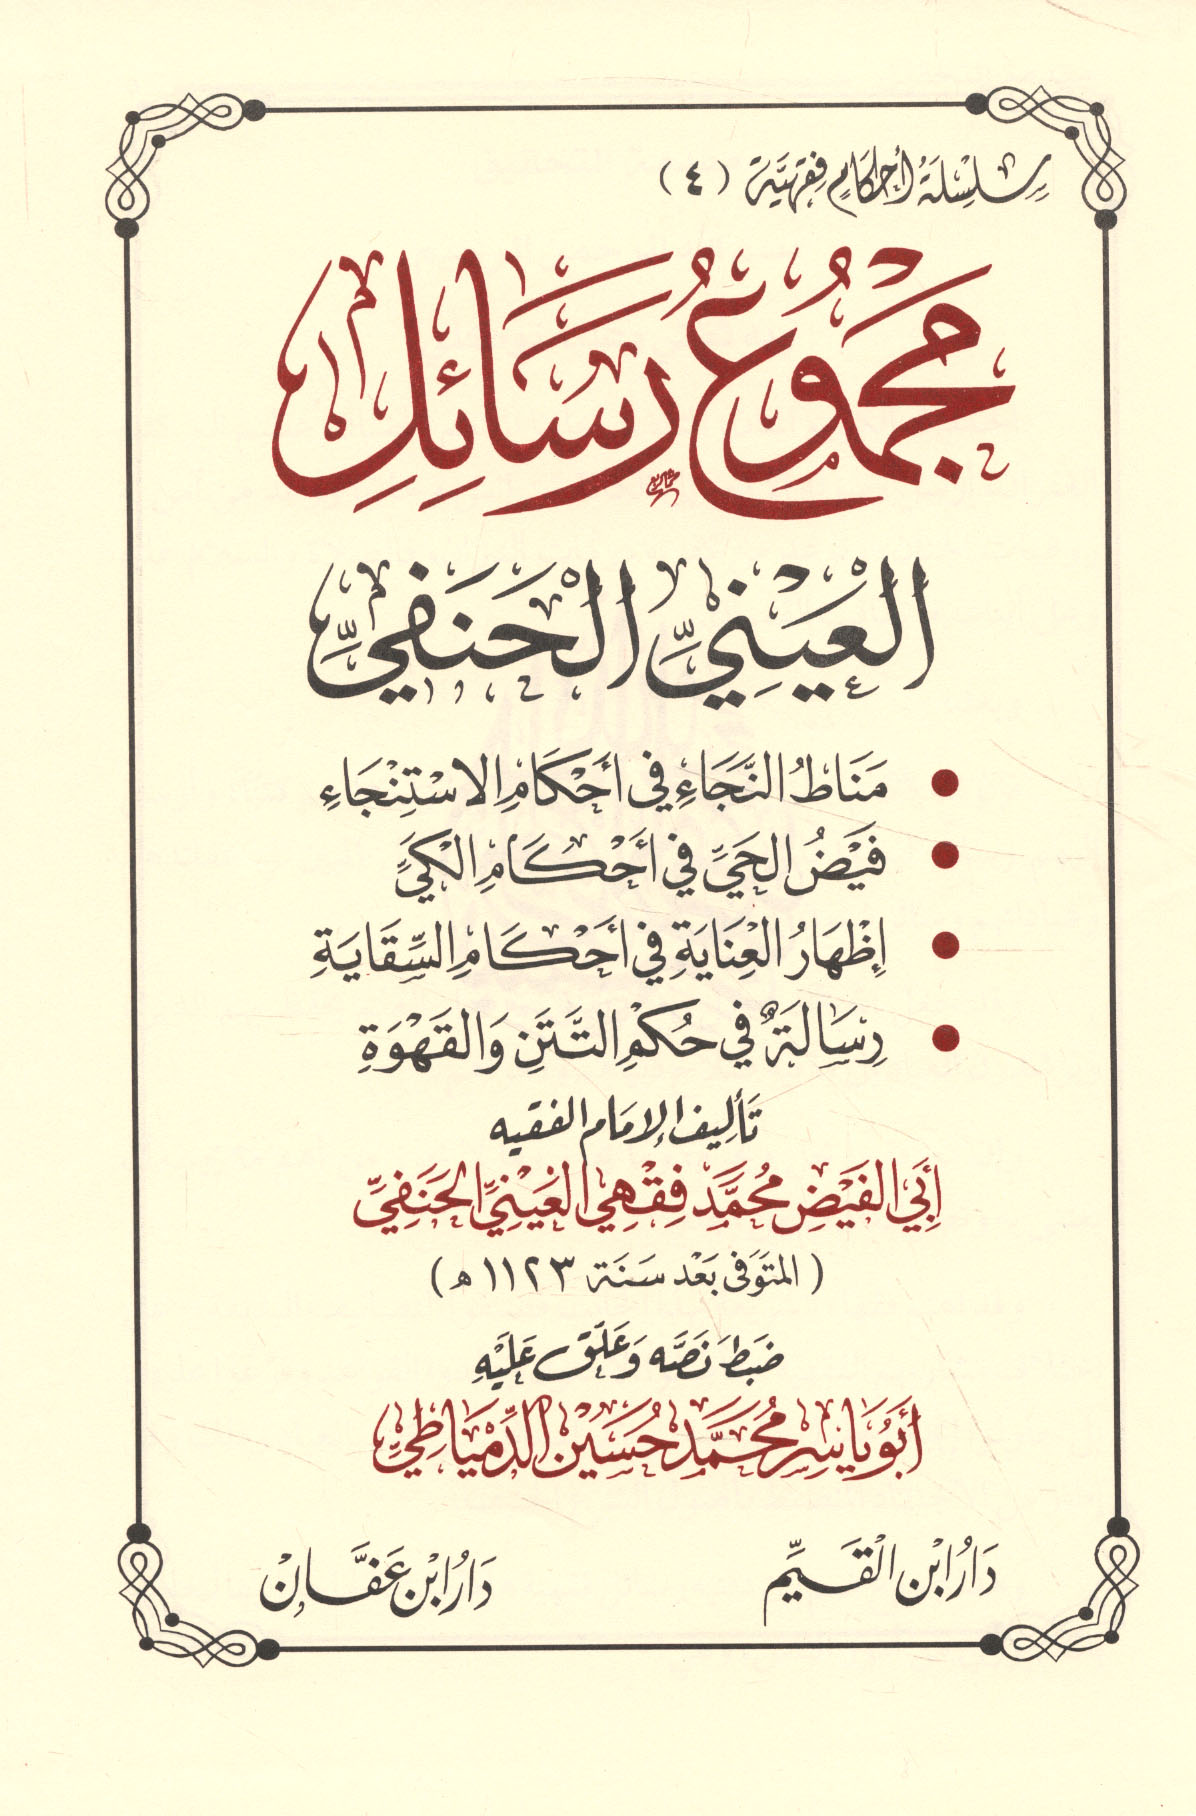 سِلْسِلَةُ أَحْكَامٍ فِقْهِيَّة (٤)
مَجْمُوعُ رَسَائِلِ
العَيْنِيِّ الْحَنَفِيِّ
• مَنَاطُ النَّجَاءِ فِي أَحْكَامِ الاسْتِنْجَاءِ
• فَيْضُ الحَيِّ فِي أَحْكَامِ الْكَيِّ
• إِظْهَارُ الْعِنَايَةِ فِي أَحْكَامِ السِّقَايَةِ
• رِسَالَةٌ فِي حُكْمِ التَّتَنِ وَالقَهْوَةِ
تَأليف الإمَام الفقيه
أَبِي الفَيْضِ مُحَمَّد فِقْهِي العَيْنِيِّ الحَنَفِيِّ
(المتَوَفى بَعْد سَنَة ١١٢٣ هـ)
ضَبَطَ نَصَّه وَعَلَّقَ عَلَيْهِ
أَبُو يَاسِر مُحَمَّد حُسَيْن الدِّمْيَاطِيِّ
دَارُ ابْن الْقَيِّم
دَارُ ابْن عَفَّان